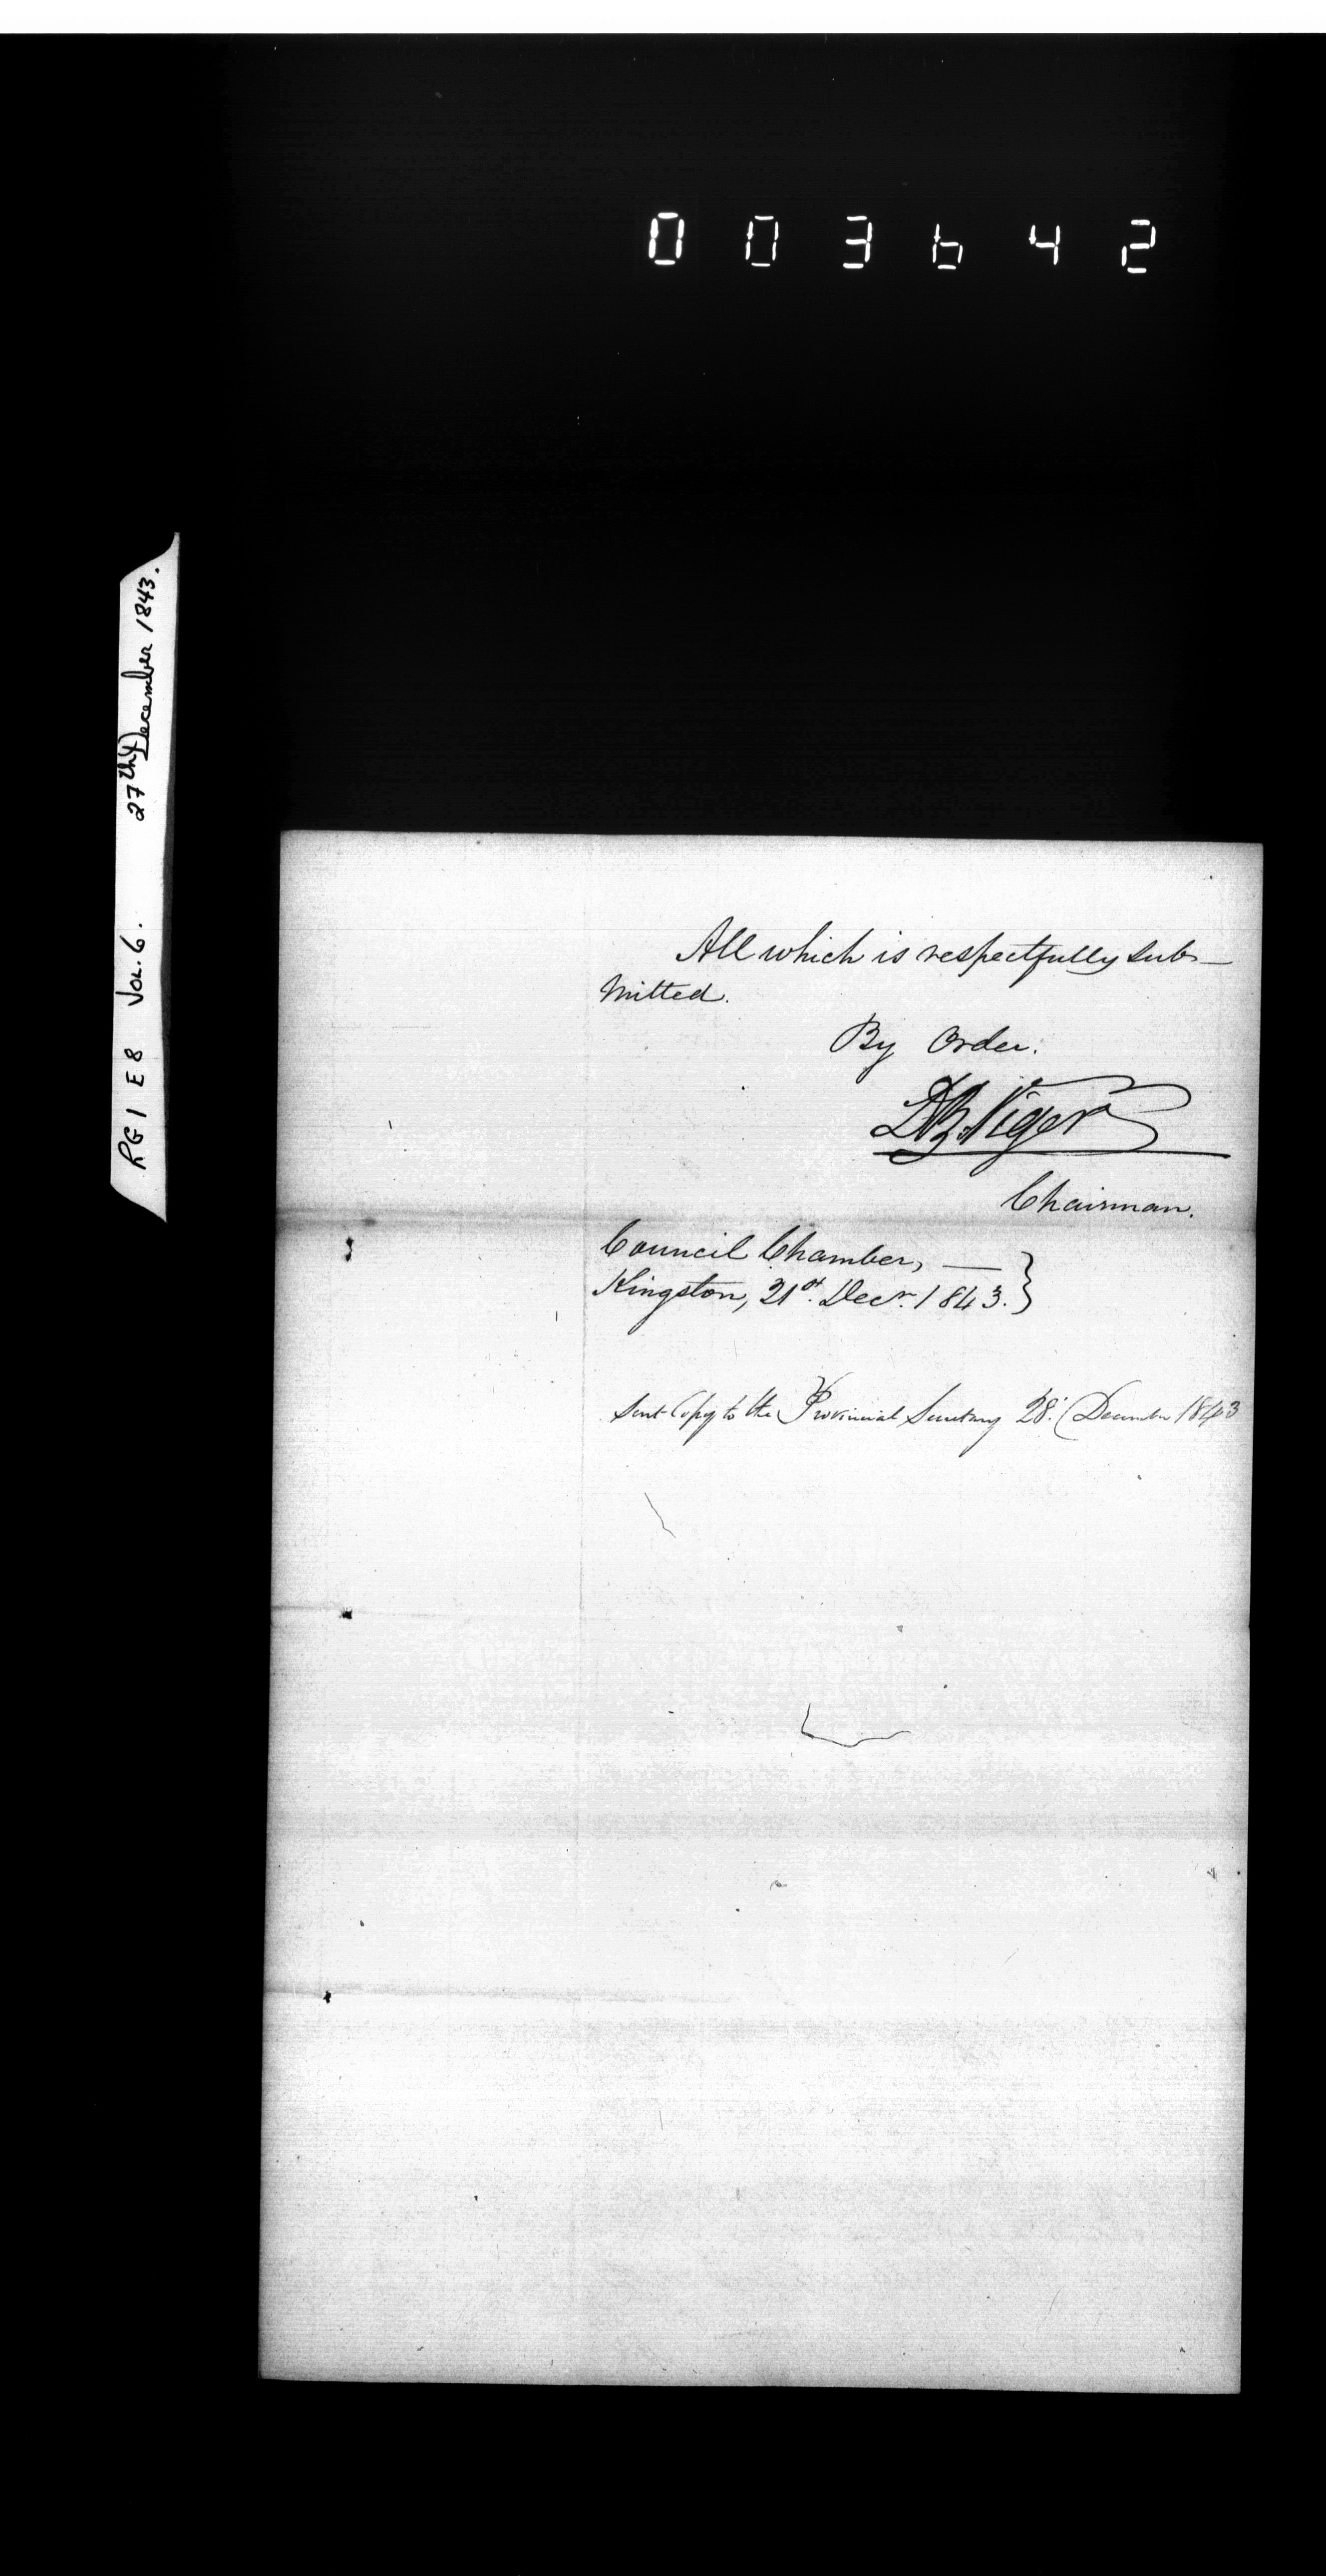 003642
RG1 E8 Vol. 6. 27th December 1843.
All which is respectfully sub-
mitted.
By Order.
DB Viger
Chairman.
Council Chamber, —
Kingston, 21st. Decr. 1843.
Sent Copy to the Provincial Secretary 28. December 1843